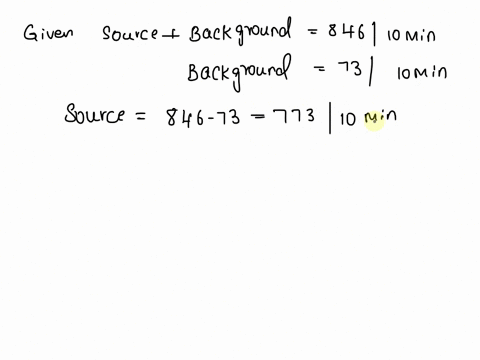 Given Source + Background = 846 | 10 Min
Background = 73 | 10 Min
Source = 846-73 = 773 | 10 Min